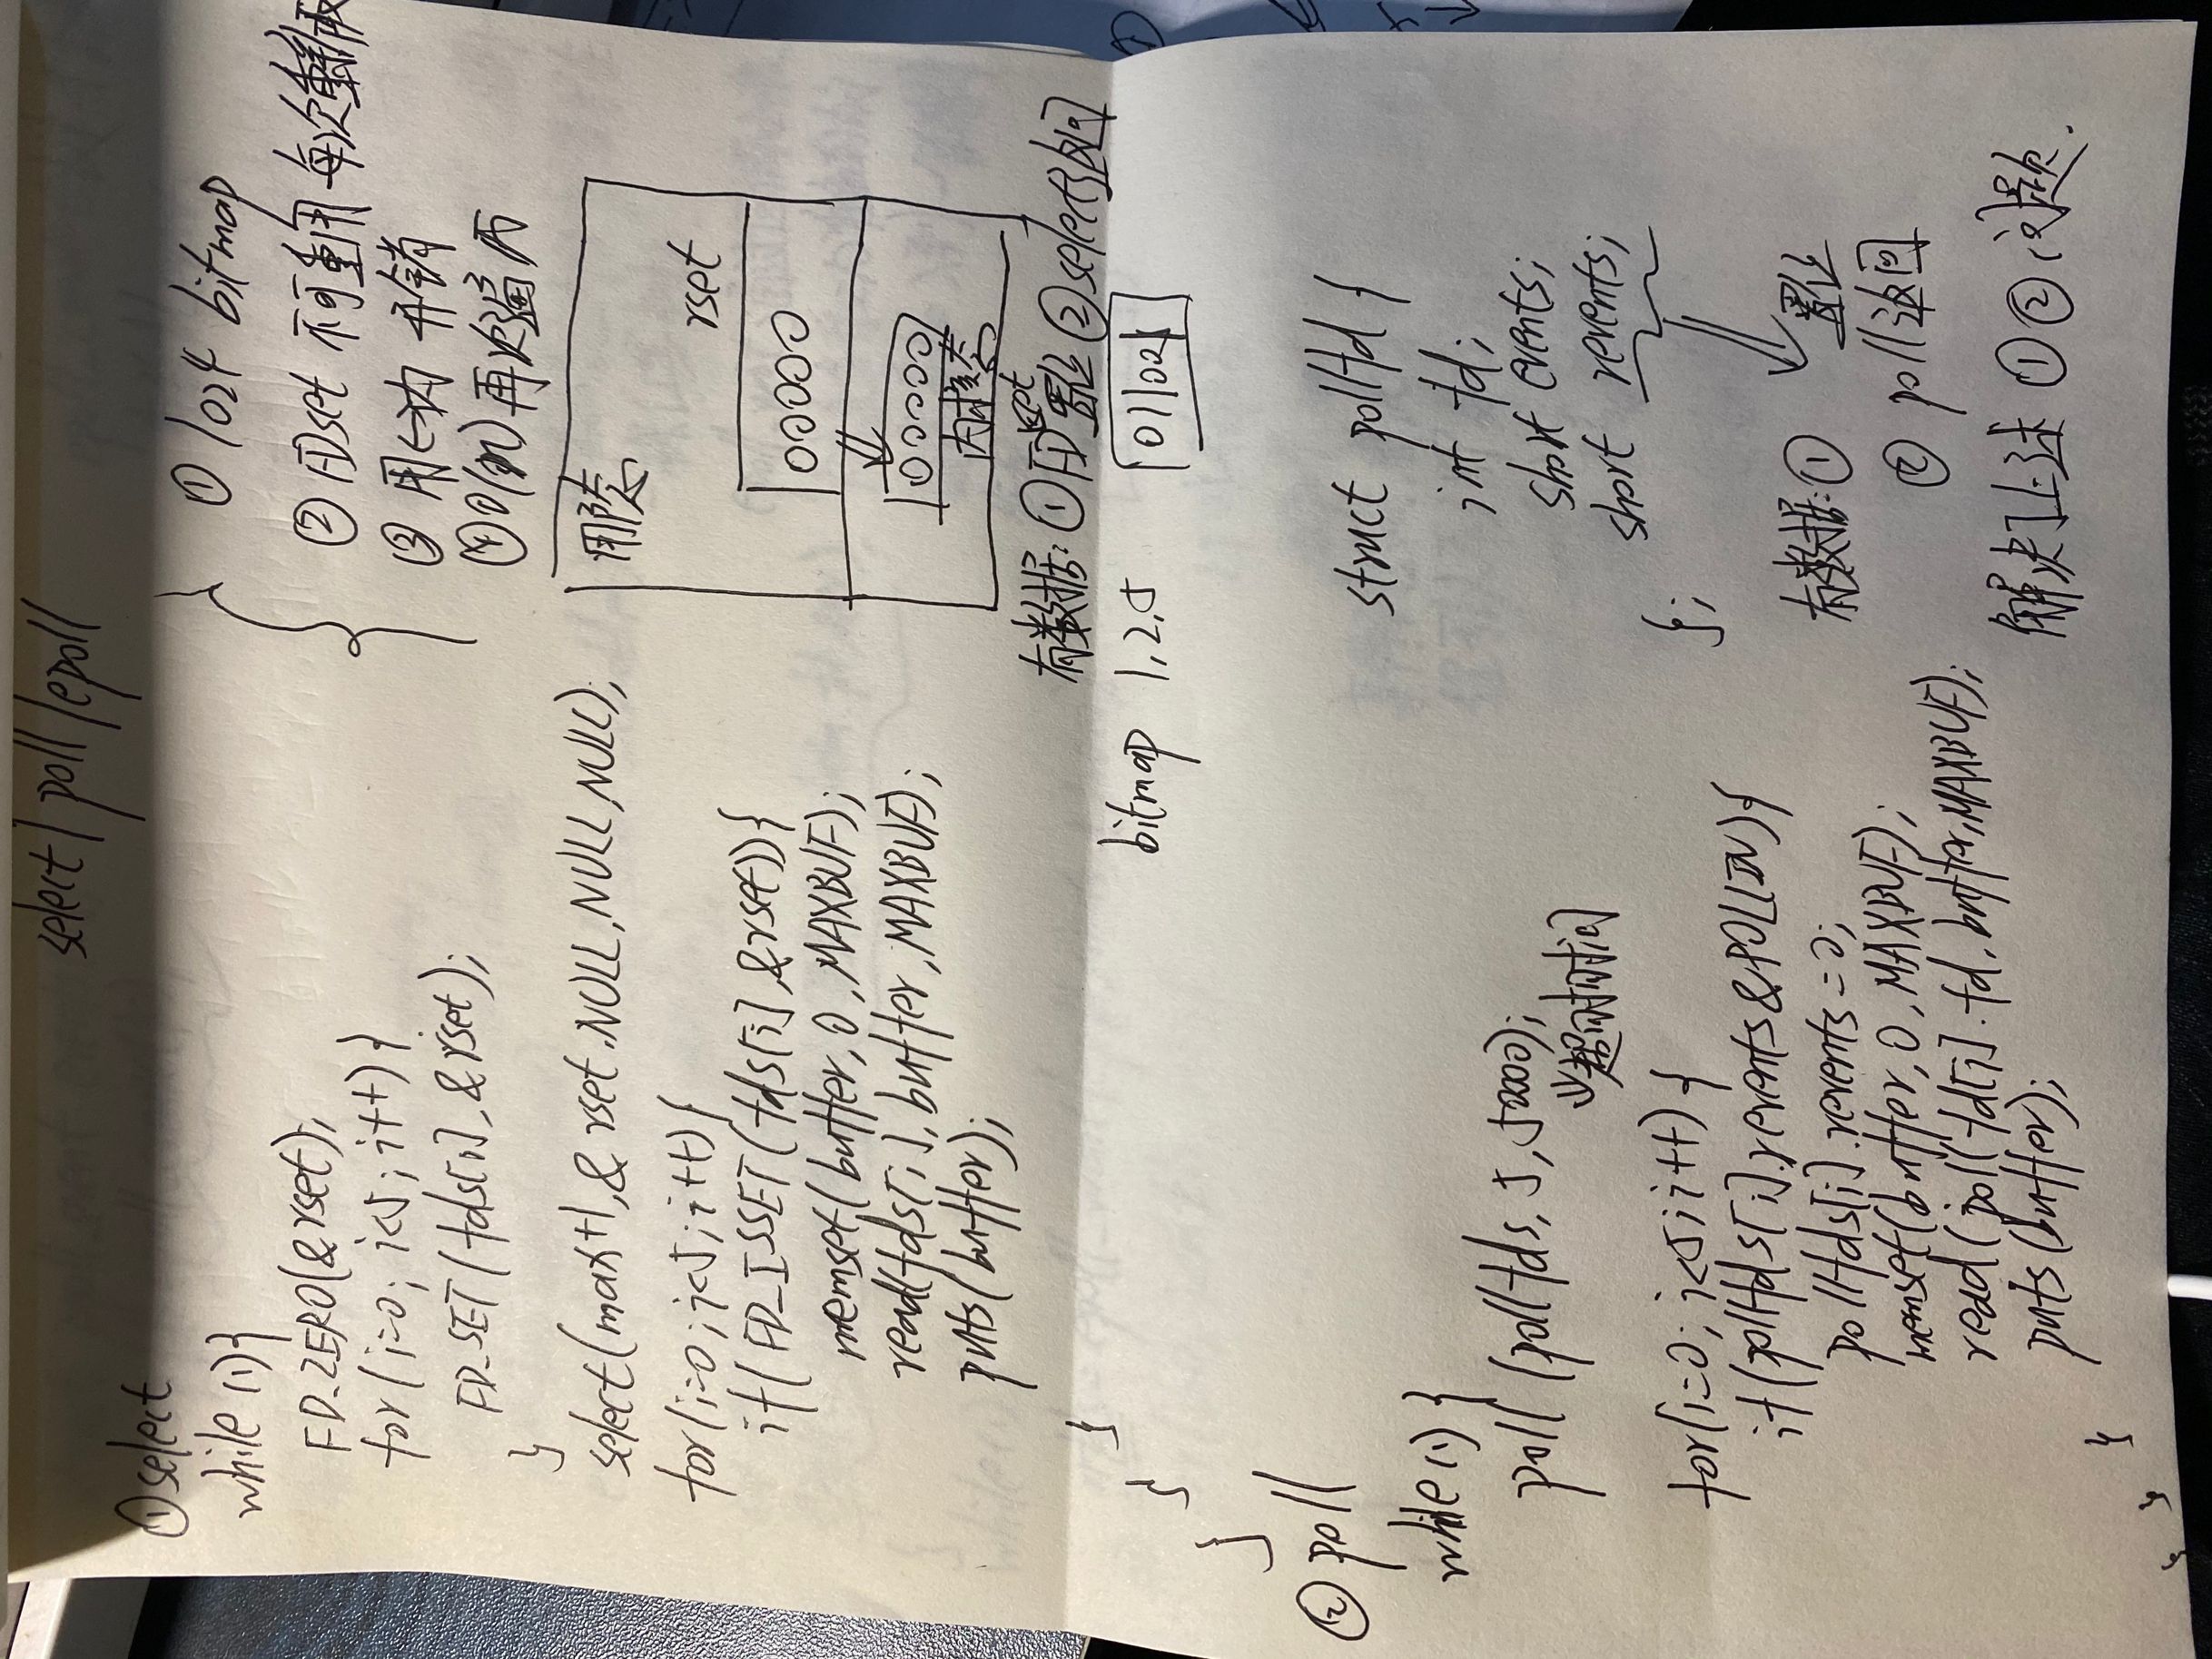 select / poll / epoll
① select
while (1) {
FD_ZERO(&rset);
for (i=0; i<5; i++) {
FD_SET(fds[i], &rset);
}
select(max+1, & rset, NULL, NULL, NULL);
for (i=0; i<5; i++) {
if( FD_ISSET(fds[i], &rset)) {
memset(buffer, 0, MAXBUF);
read(fds[i], buffer, MAXBUF);
puts(buffer);
}
}
}
① 1024 bitmap
② FDset 不可重用 每次重新
③ 用<->内 开销
④ O(n) 再次遍历
用户态
rset
00000
00000
内核态
有数据: ① FDset 置位 ② select返回
bitmap 1,2,5 011001
② poll
while (1) {
poll (pollfds, 5, 50000);
超时时间
for(i=0; i<5; i++) {
if(pollfds[i].revents & POLLIN) {
pollfds[i].revents = 0;
memset(buffer, 0, MAXBUF);
read(pollfd[i].fd, buffer, MAXBUF);
puts(buffer);
}
}
}
struct pollfd {
int fd;
short events;
short revents;
};
有数据: ① 置位
② poll返回
解决了上述 ① ② 问题.